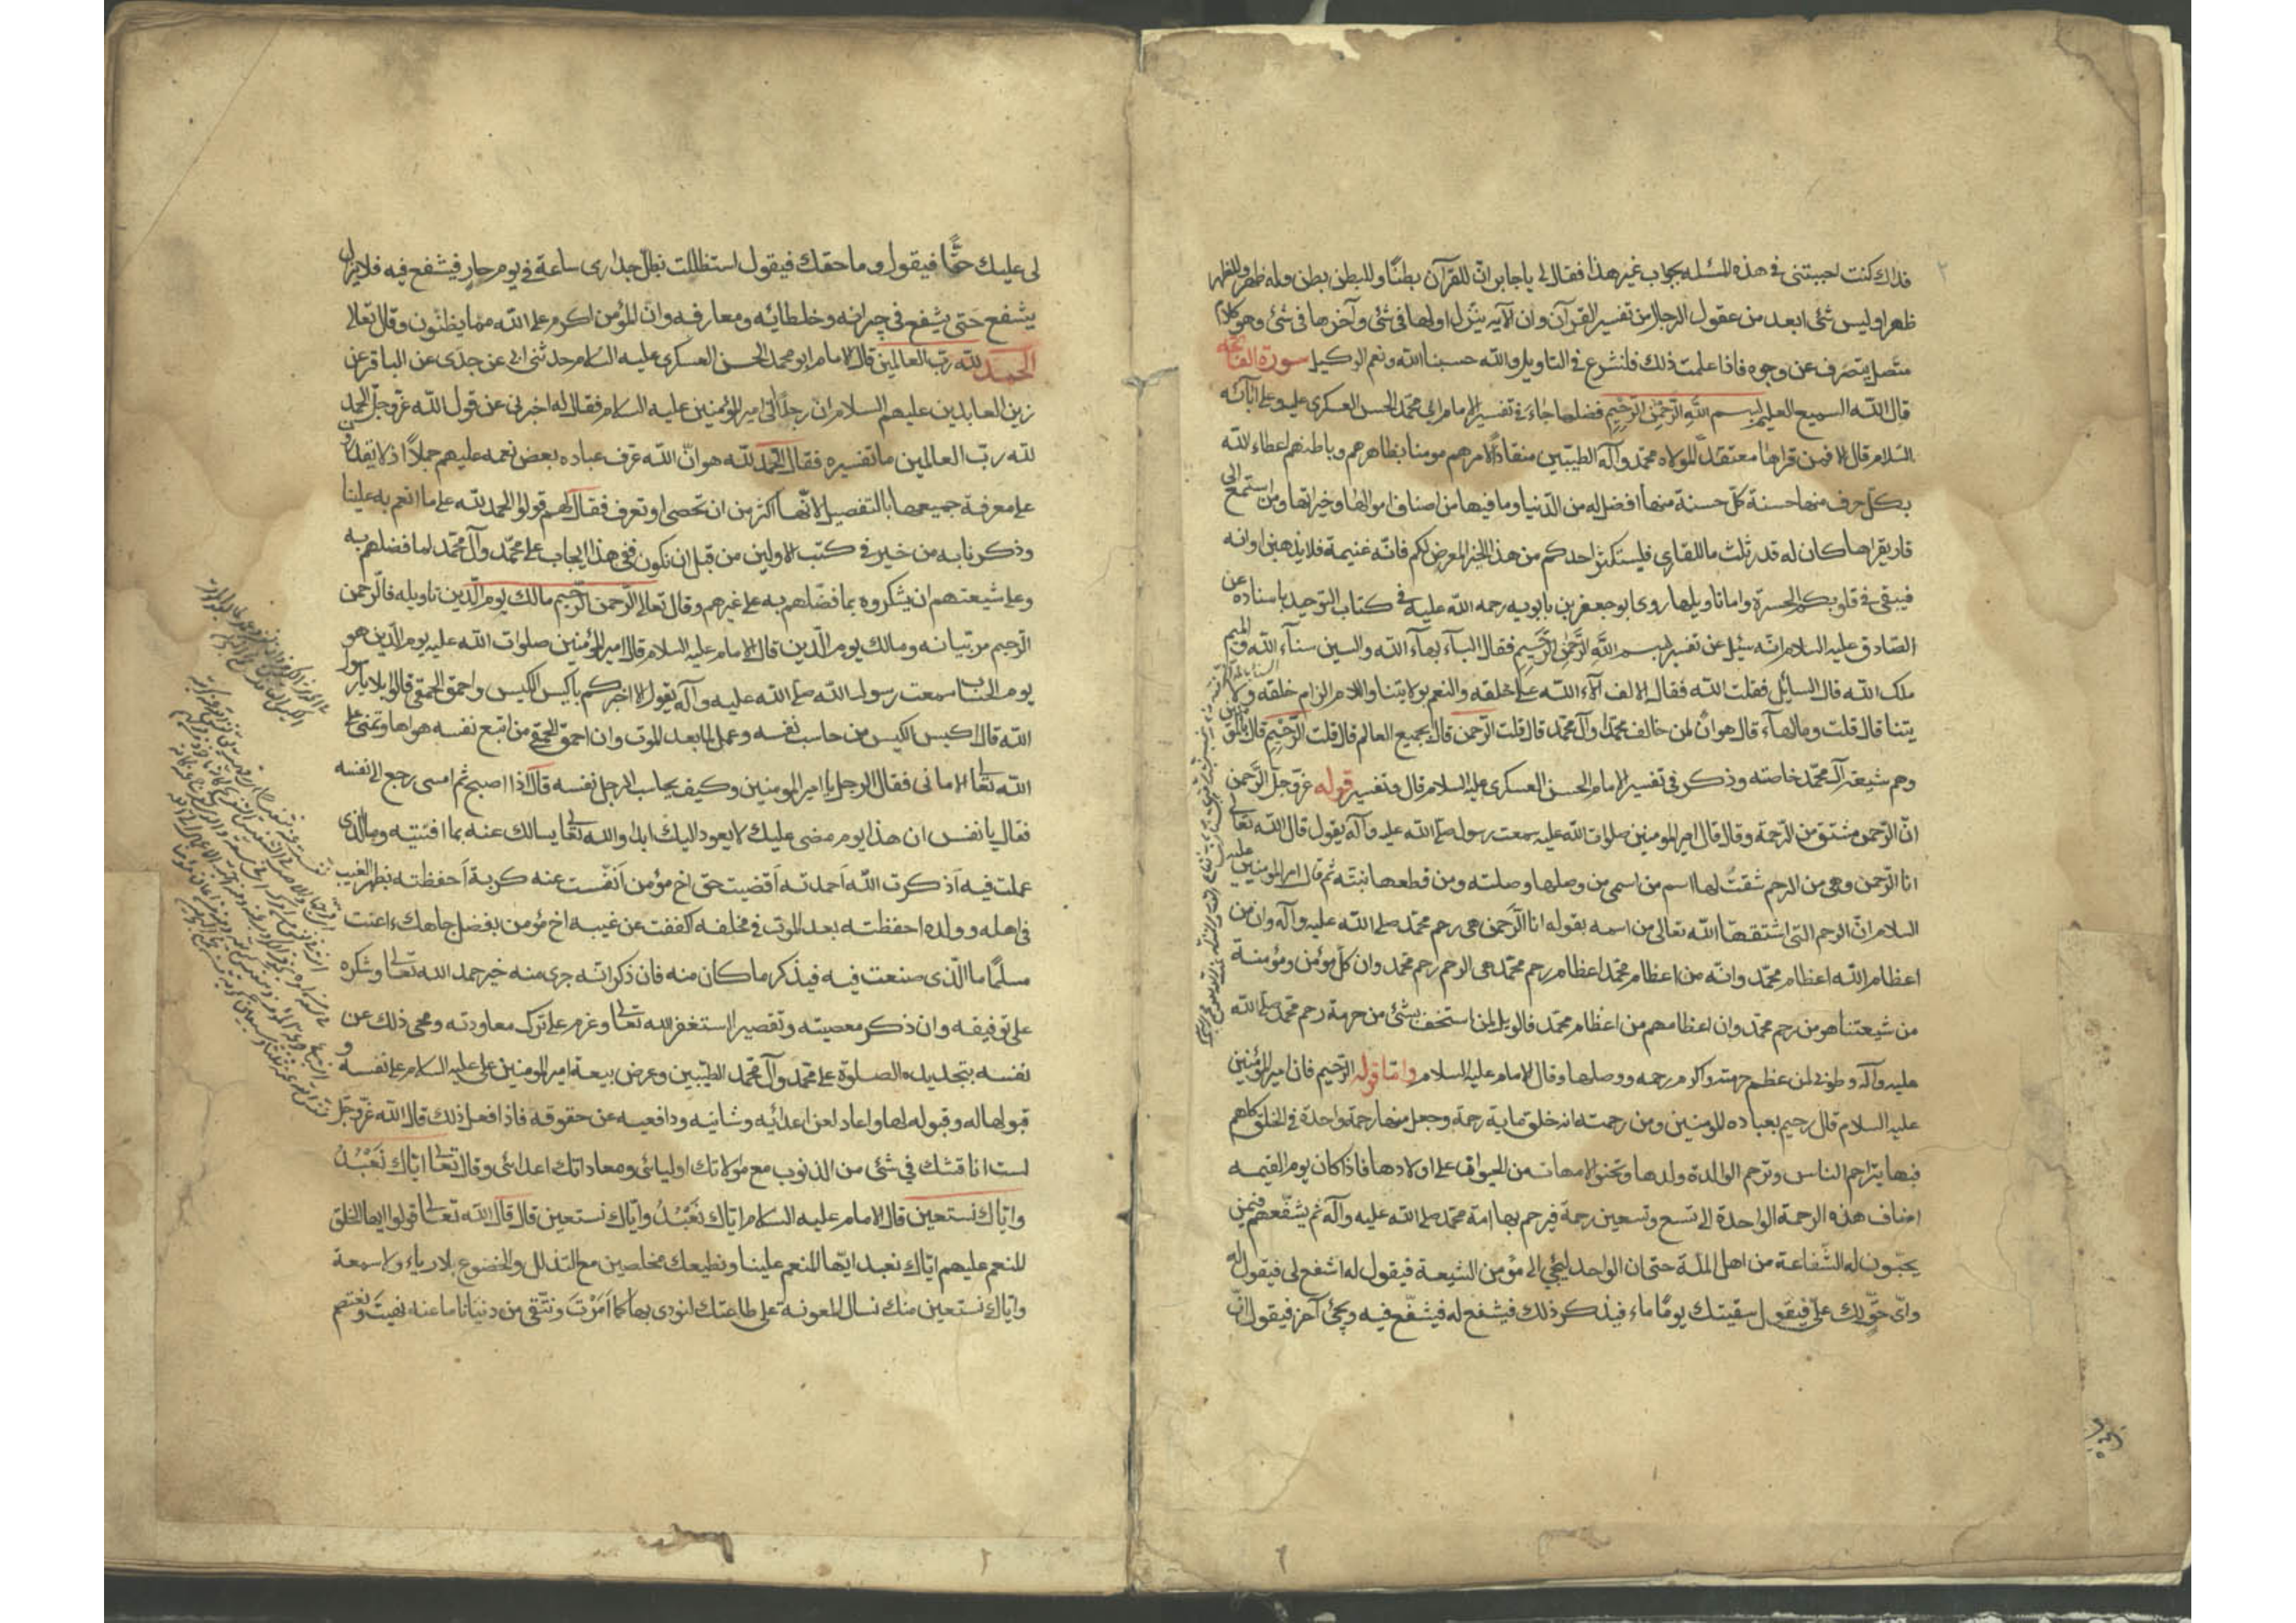 فداك كنت اجبتنى فى هذه المسئله بجواب غير هذا فقال لى يا جابر ان للقرآن بطنًا وللبطن بطن وله ظهر وللظهر
ظهر وليس شئ ابعد من عقول الرجال من تفسير القرآن وان الآيه ينزل اولها فى شئ وآخرها فى شئ وهو كلام
متصل يتصرف عن وجوه فاذا علمت ذلك فلنشرع فى التاويل والله حسبنا الله ونعم الوكيل سورة الفاتحة
قال الله السميع العليم بسم الله الرحمن الرحيم فضلها جاء فى تفسير الامام ابى محمد الحسن العسكرى عليه وعلى آبائه
السلام قال الا فمن قراها معتقدًا لموالاة محمد وآله الطيبين منقادًا لامرهم مومنا بظاهرهم وباطنهم اعطاه الله
بكل حرف منها حسنة كل حسنة منها افضل له من الدنيا وما فيها من اصناف اموالها وخيراتها ومن استمع الى
قارئ يقراها كان له قدر ثلث ما للقارى فليستكثر احدكم من هذا الخير المعرض لكم فانه غنيمة فلا يذهبن اوانه
فيبقى فى قلوبكم الحسرة واما تاويلها روى ابو جعفر بن بابويه رحمه الله عليه فى كتاب التوحيد باسناده عن
الصادق عليه السلام انه سئل عن تفسير بسم الله الرحمن الرحيم فقال الباء بهاء الله والسين سناء الله والميم
ملك الله قال السائل فقلت الله فقال الالف آلاء الله على خلقه والنعم بولايتنا واللام الزام خلقه ولا
يتنا قال قلت وما الهاء قال هوان لمن خالف محمد وآل محمد قال قلت الرحمن قال بجميع العالم قال قلت الرحيم قال بالمؤمنين
وهم شيعة آل محمد خاصته وذكر فى تفسير الامام الحسن العسكرى عليه السلام قال وتفسير قوله عز وجل الرحمن
ان الرحمن مشتق من الرحمة وقال قال امير المومنين صلوات الله عليه سمعت رسوله صلى الله عليه وآله يقول قال الله تعالى
انا الرحمن وهى من الرحم شققت لها اسم من اسمى من وصلها وصلته ومن قطعها بتته ثم قال امير المومنين عليه
السلام ان الرحم التى اشتقها الله تعالى من اسمه بقوله انا الرحمن هى رحم محمد صلى الله عليه وآله وان من
اعظام الله اعظام محمد وانه من اعظام محمد اعظام رحم محمد هى الرحم رحم محمد وان كل مؤمن ومؤمنة
من شيعتنا هو من رحم محمد وان اعظامهم من اعظام محمد فالويل لمن استخف بشئ من حرمة رحم محمد صلى الله
عليه وآله وطوبى لمن عظم حرمته واكرم رحمه ووصلها وقال الامام عليه السلام واما قوله الرحيم فان امير المؤمنين
عليه السلام قال رحيم بعباده المومنين ومن رحمته انه خلق ماية رحمة وجعل منها رحمة واحدة فى الخلق كلهم
فبها يتراحم الناس وترحم الوالدة ولدها وتحنو الامهات من الحيوان على اولادها فاذا كان يوم القيمه
اضاف هذه الرحمة الواحدة الى تسع وتسعين رحمة فيرحم بها امة محمد صلى الله عليه وآله ثم يشفعهم فيمن
يحبون له الشفاعة من اهل الملة حتى ان الواحد ليجئ الى مؤمن الشيعة فيقول له اشفع لى فيقول له
واى حق لك على فيقول سقيتك يومًا ماء فيذكر ذلك فيشفع له فيشفع فيه ويجئ آخر فيقول ان
لى عليك حقًا فيقول وما حقك فيقول استظللت بظل جدارى ساعة فى يوم حار فيشفع فيه فلا يزال
يشفع حتى يشفع فى جيرانه وخلطائه ومعارفه وان المؤمن اكرم على الله مما يظنون وقال تعالى
الحمد لله رب العالمين قال الامام ابو محمد الحسن العسكرى عليه السلام حدثنى ابى عن جدى عن الباقر عن
زين العابدين عليهم السلام ان رجلًا اتى امير المؤمنين عليه السلام فقال له اخبرنى عن قول الله عز وجل الحمد
لله رب العالمين ما تفسيره فقال الحمد لله هو ان الله عرف عباده بعض نعمه عليهم جملًا اذ لا يقدرون
على معرفة جميعها بالتفصيل لانها اكثر من ان تحصى او تعرف فقال لهم قولوا الحمد لله على ما انعم به علينا
وذكرنا به من خير فى كتب الاولين من قبل ان نكون ففى هذا ايجاب على محمد وآل محمد لما فضلهم به
وعلى شيعتهم ان يشكروه بما فضلهم به على غيرهم وقال تعالى الرحمن الرحيم مالك يوم الدين تاويله فالرحمن
الرحيم مر بيانه ومالك يوم الدين قال الامام عليه السلام قال امير المؤمنين صلوات الله عليه يوم الدين هو
يوم الحساب سمعت رسول الله صلى الله عليه وآله يقول الا اخبركم باكيس الكيس واحمق الحمقى قالوا بلى يا رسول
الله قال اكيس الكيس من حاسب نفسه وعمل لما بعد الموت وان احمق الحمقى من اتبع نفسه هواها وتمنى على
الله تعالى الامانى فقال الرجل يا امير المومنين وكيف يحاسب الرجل نفسه قال اذا اصبح ثم امسى رجع الى نفسه
فقال يا نفس ان هذا يوم مضى عليك لا يعود اليك ابدا والله تعالى يسالك عنه بما افنيته وما الذى
عملت فيه أذكرت الله أحمدته أقضيت حق اخ مؤمن أنفست عنه كربة أحفظته بظهر الغيب
فى اهله وولده احفظته بعد الموت فى مخلفه أكففت عن غيبة اخ مؤمن بفضل جاهك ءاعنت
مسلمًا ما الذى صنعت فيه فيذكر ما كان منه فان ذكر انه جرى منه خير حمد الله تعالى وشكره
على توفيقه وان ذكر معصيته وتقصير استغفر الله تعالى وعزم على ترك معاودته ومحى ذلك عن
نفسه بتجديد الصلوة على محمد وآل محمد الطيبين وعرض بيعة امير المومنين على عليه السلام على نفسه و
قبولها له وقبوله لها واعاد لعن اعدائه وشانيه ودافعيه عن حقوقه فاذا فعل ذلك قال الله عز وجل
لست اناقشك فى شئ من الذنوب مع موالاتك اوليائى ومعاداتك اعدائى وقال تعالى اياك نعبد
واياك نستعين قال الامام عليه السلام اياك نعبد واياك نستعين قال قال الله تعالى قولوا ايها الخلق
المنعم عليهم اياك نعبد ايها المنعم علينا ونطيعك مخلصين مع التذلل والخضوع بلا رياء ولا سمعة
واياك نستعين منك نسال المعونة على طاعتك لنودى بها كما امرت ونتقى من دنيانا ما عنه نهيت ونعتصم